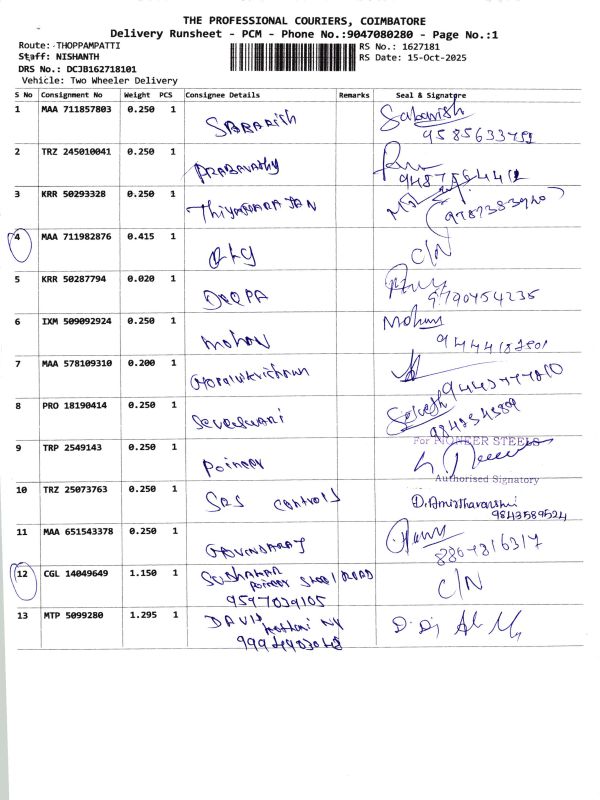 THE PROFESSIONAL COURIERS, COIMBATORE
Delivery Runsheet - PCM - Phone No.:9047080280 - Page No.:1
Route: THOPPAMPATTI
RS No.: 1627181
Staff: NISHANTH
RS Date: 15-Oct-2025
DRS No.: DCJB162718101
Vehicle: Two Wheeler Delivery
S No Consignment No Weight PCS Consignee Details Remarks Seal & Signature
1 MAA 711857803 0.250 1 SABARISH Sabarish
2 TRZ 245010041 0.250 1 PRABAVATHY
3 KRR 50293328 0.250 1 THIYAGARAJAN
4 MAA 711982876 0.415 1 C/N
5 KRR 50287794 0.020 1 DEEPA
9790454235
6 IXM 509092924 0.250 1 Mohan Mohan
7 MAA 578109310 0.200 1 Gopalakrishnan
8 PRO 18190414 0.250 1
9842034389
For PIONEER STEELS
9 TRP 2549143 0.250 1 Poineer
Authorised Signatory
10 TRZ 25073763 0.250 1 SRS Controls D.Amirthavarshini
9843589524
11 MAA 651543378 0.250 1 GOVINDARAJ
8867816317
12 CGL 14049649 1.150 1 SUDHAKAR C/N
Poineer Steel ROAD
9597039105
13 MTP 5099280 1.295 1 DAVID
9994903048